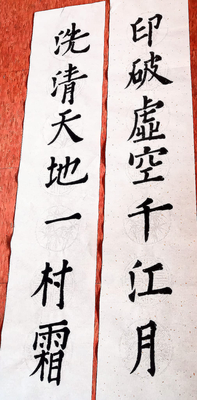 印破虛空千江月
洗清天地一村霜